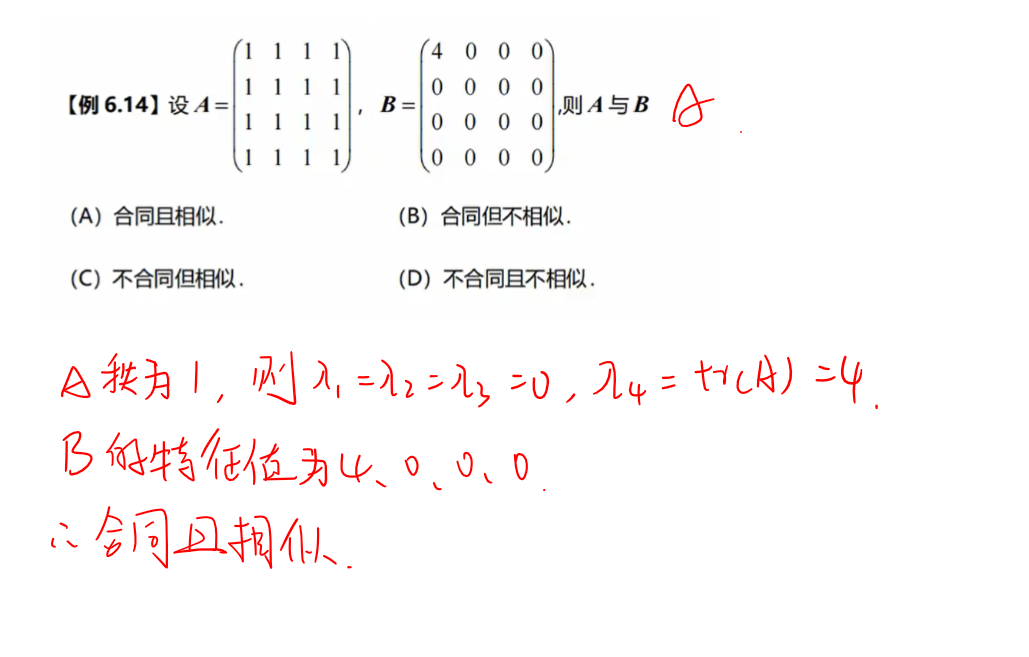 【例 6.14】设 A = (1 1 1 1; 1 1 1 1; 1 1 1 1; 1 1 1 1), B = (4 0 0 0; 0 0 0 0; 0 0 0 0; 0 0 0 0) ,则 A 与 B A
(A) 合同且相似. (B) 合同但不相似.
(C) 不合同但相似. (D) 不合同且不相似.
A 秩为 1, 则 λ₁=λ₂=λ₃=0, λ₄=tr(A)=4.
B 的特征值为 4、0、0、0.
∴ 合同且相似.